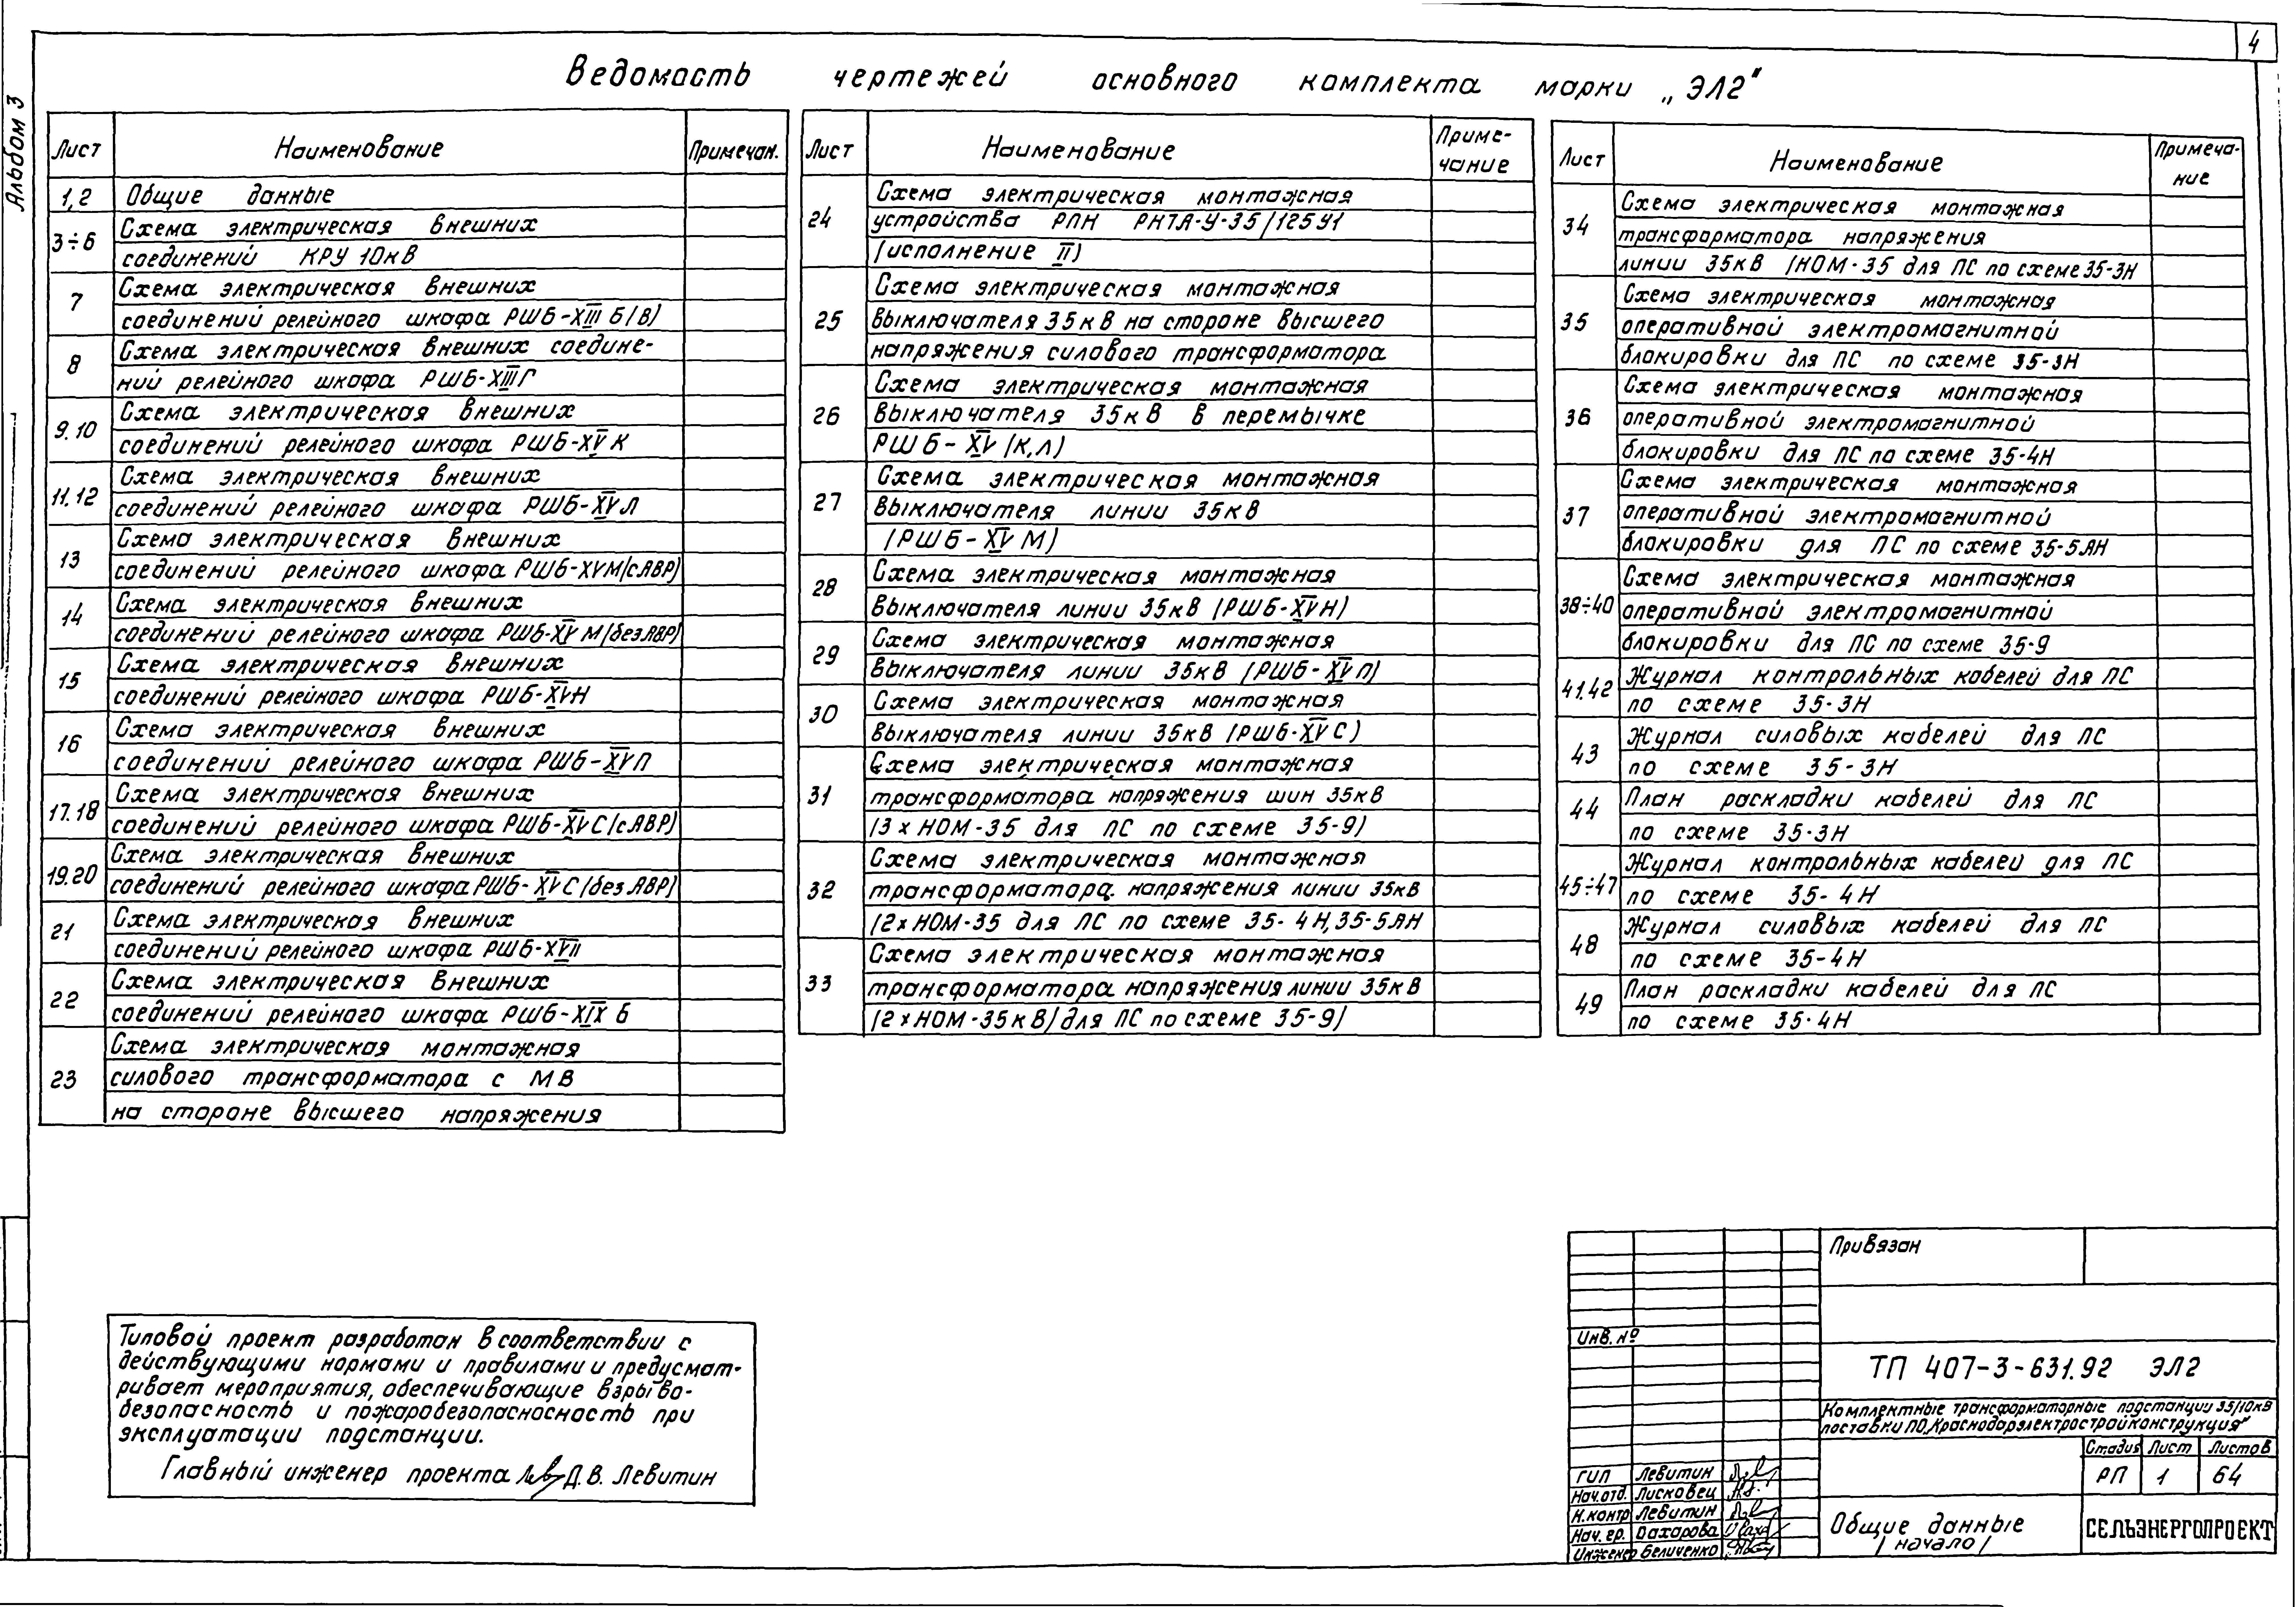 4
Альбом 3
Ведомость чертежей основного комплекта марки „ЭЛ2"
Лист Наименование Примечан.
1,2 Общие данные
3÷6 Схема электрическая внешних
соединений КРУ 10кВ
7 Схема электрическая внешних
соединений релейного шкафа РШБ-XIII Б(В)
8 Схема электрическая внешних соедине-
ний релейного шкафа РШБ-XIIIГ
9.10 Схема электрическая внешних
соединений релейного шкафа РШБ-XV К
11.12 Схема электрическая внешних
соединений релейного шкафа РШБ-XV Л
13 Схема электрическая внешних
соединений релейного шкафа РШБ-XVМ(сАВР)
14 Схема электрическая внешних
соединений релейного шкафа РШБ-XV М(без АВР)
15 Схема электрическая внешних
соединений релейного шкафа РШБ-XVН
16 Схема электрическая внешних
соединений релейного шкафа РШБ-XVП
17.18 Схема электрическая внешних
соединений релейного шкафа РШБ-XVС(сАВР)
19.20 Схема электрическая внешних
соединений релейного шкафа РШБ-XVС(без АВР)
21 Схема электрическая внешних
соединений релейного шкафа РШБ-XVII
22 Схема электрическая внешних
соединений релейного шкафа РШБ-XIX Б
23 Схема электрическая монтажная
силового трансформатора с МВ
на стороне высшего напряжения
Лист Наименование Приме-
чание
24 Схема электрическая монтажная
устройства РПН РНТА-У-35/125У1
(исполнение II)
25 Схема электрическая монтажная
выключателя 35кВ на стороне высшего
напряжения силового трансформатора
26 Схема электрическая монтажная
выключателя 35кВ в перемычке
РШБ-XV (К,Л)
27 Схема электрическая монтажная
выключателя линии 35кВ
(РШБ-XV М)
28 Схема электрическая монтажная
выключателя линии 35кВ (РШБ-XVН)
29 Схема электрическая монтажная
выключателя линии 35кВ (РШБ-XVП)
30 Схема электрическая монтажная
выключателя линии 35кВ (РШБ-XVС)
31 Схема электрическая монтажная
трансформатора напряжения шин 35кВ
(3×НОМ-35 для ПС по схеме 35-9)
32 Схема электрическая монтажная
трансформатора напряжения линии 35кВ
(2×НОМ-35 для ПС по схеме 35-4Н,35-5АН
33 Схема электрическая монтажная
трансформатора напряжения линии 35кВ
(2×НОМ-35кВ)для ПС по схеме 35-9)
Лист Наименование Примеча-
ние
34 Схема электрическая монтажная
трансформатора напряжения
линии 35кВ (НОМ-35 для ПС по схеме 35-3Н
35 Схема электрическая монтажная
оперативной электромагнитной
блокировки для ПС по схеме 35-3Н
36 Схема электрическая монтажная
оперативной электромагнитной
блокировки для ПС по схеме 35-4Н
37 Схема электрическая монтажная
оперативной электромагнитной
блокировки для ПС по схеме 35-5АН
38÷40 Схема электрическая монтажная
оперативной электромагнитной
блокировки для ПС по схеме 35-9
41.42 Журнал контрольных кабелей для ПС
по схеме 35-3Н
43 Журнал силовых кабелей для ПС
по схеме 35-3Н
44 План раскладки кабелей для ПС
по схеме 35-3Н
45÷47 Журнал контрольных кабелей для ПС
по схеме 35-4Н
48 Журнал силовых кабелей для ПС
по схеме 35-4Н
49 План раскладки кабелей для ПС
по схеме 35-4Н
Типовой проект разработан в соответствии с
действующими нормами и правилами и предусмат-
ривает мероприятия, обеспечивающие взрыво-
безопасность и пожаробезопасносность при
эксплуатации подстанции.
Главный инженер проекта Д.В. Левитин
Привязан
Инв. №
ТП 407-3-631.92 ЭЛ2
Комплектные трансформаторные подстанции 35/10кВ
поставки ПО„Краснодарэлектростройконструкция"
Стадия Лист Листов
РП 1 64
ГИП Левитин
Нач.отд. Лисковец
Н.контр Левитин
Нач. гр. Захарова
Инженер Беличенко
Общие данные
(начало)
СЕЛЬЭНЕРГОПРОЕКТ